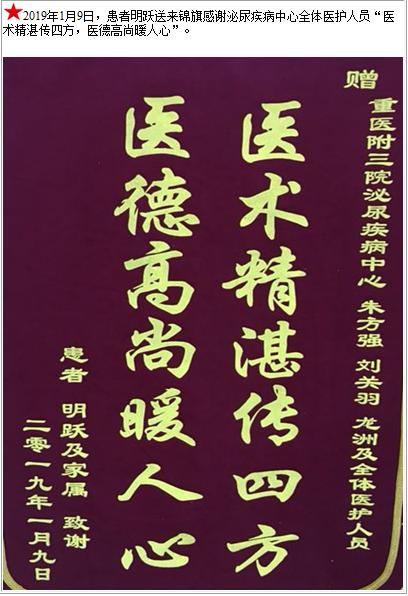 ★2019年1月9日，患者明跃送来锦旗感谢泌尿疾病中心全体医护人员“医
术精湛传四方，医德高尚暖人心”。
赠
重医附三院泌尿疾病中心 朱方强 刘关羽 龙洲及全体医护人员
医术精湛传四方
医德高尚暖人心
患者 明跃及家属 致谢
二零一九年一月九日